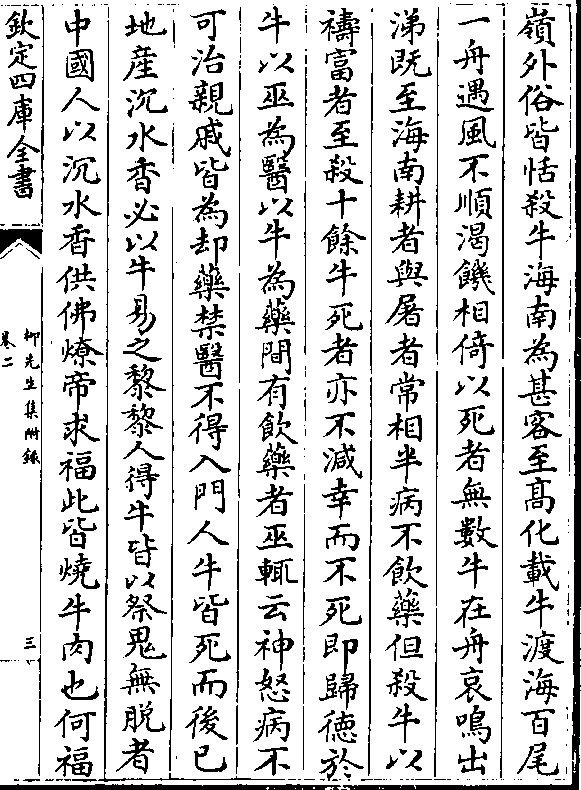 嶺外俗皆恬殺牛海南為甚客至髙化載牛渡海百尾
一舟遇風不順渴饑相倚以死者無數牛在舟哀鳴出
涕既至海南耕者與屠者常相半病不飲藥但殺牛以
禱富者至殺十餘牛死者亦不減幸而不死即歸德於
牛以巫為醫以牛為藥間有飲藥者巫輒云神怒病不
可治親戚皆為却藥禁醫不得入門人牛皆死而後已
地産沉水香必以牛易之黎黎人得牛皆以祭鬼無脱者
中國人以沉水香供佛燎帝求福此皆燒牛肉也何福
欽定四庫全書
柳先生集附錄
卷二
三